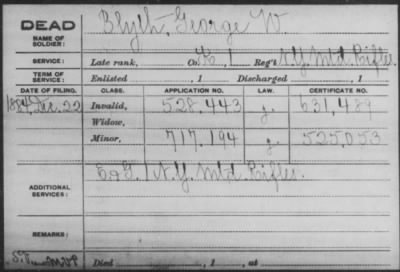 DEAD
NAME OF SOLDIER: Blyth, George W
SERVICE: Late rank, Co. K, 1 Reg't N.Y. Mtd. Rifles.
TERM OF SERVICE: Enlisted , 1 Discharged , 1
DATE OF FILING. CLASS. APPLICATION NO. LAW. CERTIFICATE NO.
1884, Dec. 22 Invalid, 528.443 g. 631,489
Widow,
Minor, 717.194 g. 525,053
ADDITIONAL SERVICES: Co G. 1 N.Y. Mtd. Rifles.
REMARKS:
Died , 1 , at